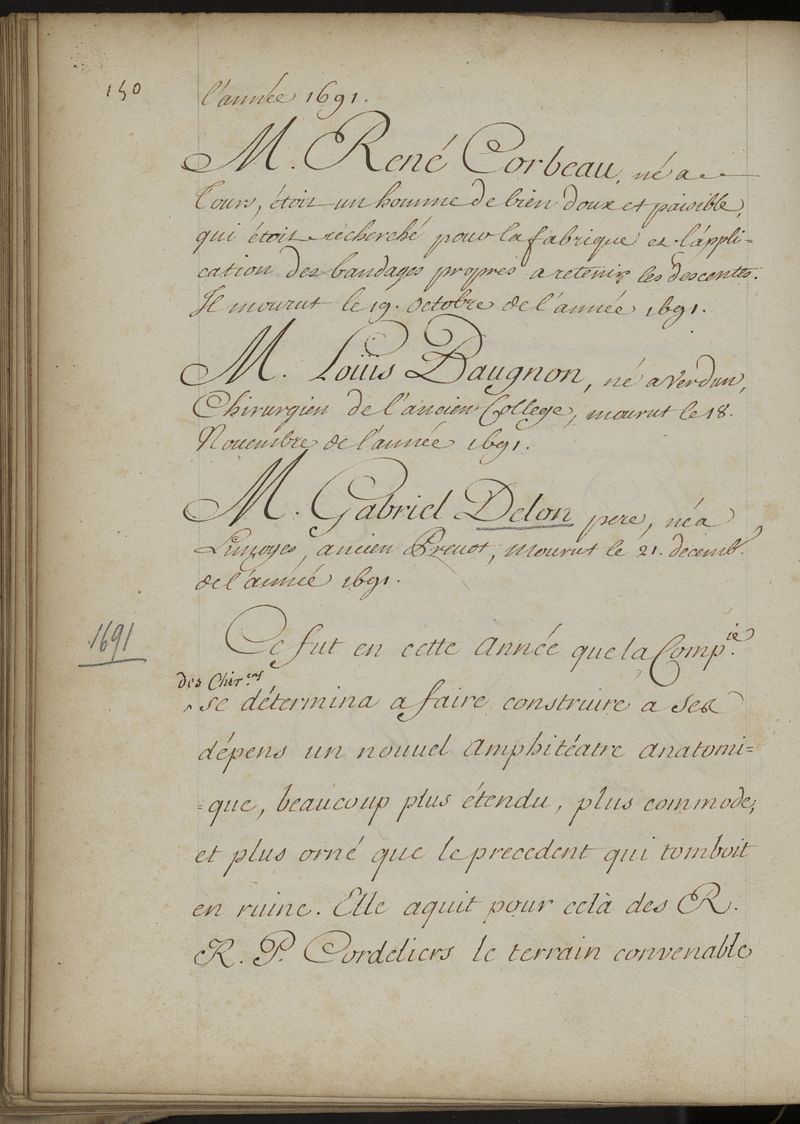 150
l'année 1691.
M. René Corbeau, né a
Tours, étoit un homme de bien doux et paisible,
qui étoit recherché pour la fabrique et l'appli=
cation des bandages propres a retenir les descentes.
Il mourut le 19. octobre de l'année 1691.
M. Loüis Baugnon, né a Verdun,
Chirurgien de l'ancien College, mourut le 18.
Novembre de l'année 1691.
M. Gabriel Delon pere, né a
Limoges, ancien Prevot, mourut le 21. decemb.
de l'année 1691.
1691
Ce fut en cette année que la Comp.ie
des Chir.ens
^ se détermina a faire construire a ses
dépens un nouvel amphitéatre anatomi=
=que, beaucoup plus étendu, plus commode,
et plus orné que le precedent qui tomboit
en ruine. Elle aquit pour celà des R.
R. P. Cordeliers le terrain convenable